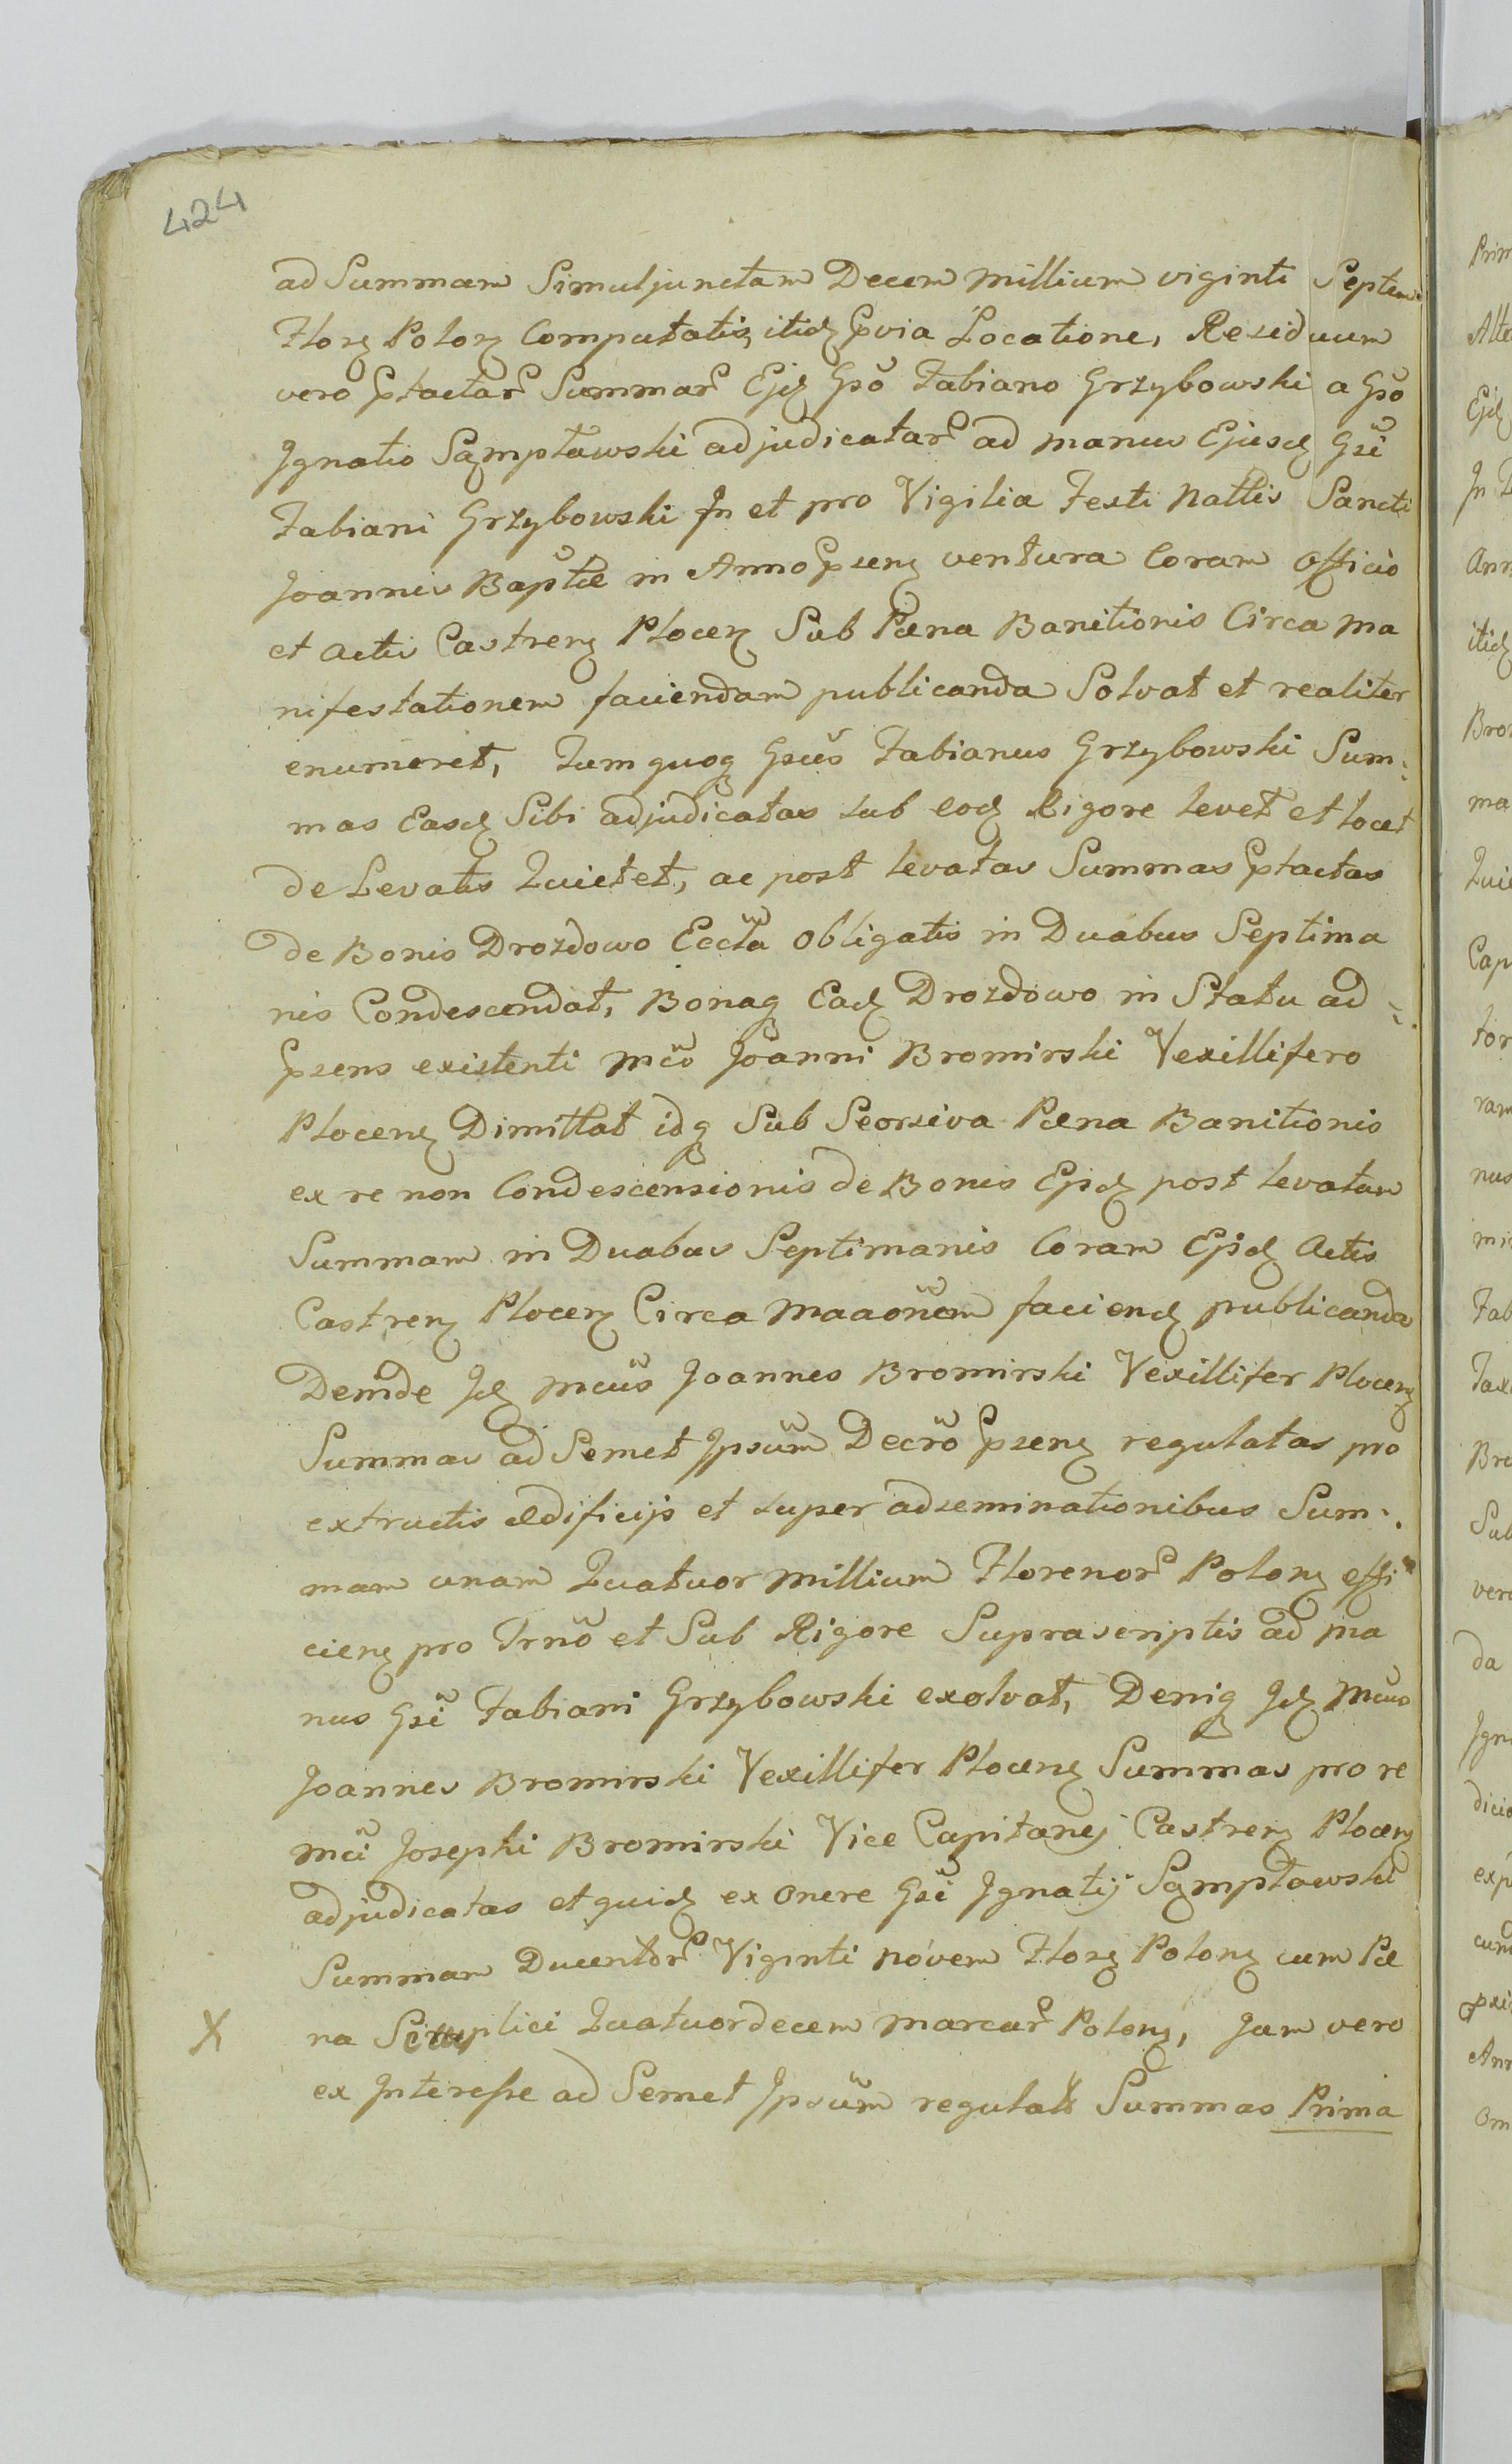 424
ad Summam Simul junctam Decem millium viginti Septem
Florz Polorz Computatis, itidz Pvia Locatione, Residuum
vero Ptactar Summar Ejdz Gso Fabiano Grzybowski a Gso
Ignatio Sąmpławski adjudicatar ad manus Ejusdz Gsi
Fabiani Grzybowski In et pro Vigilia Festi Natlis Sancti
Joannis Baptæ in Anno Psenz ventura Coram Officio
et Actis Castrenz Plocenz Sub Pæna Banitionis Circa ma
nifestationem faciendam publicanda Solvat et realiter
enumeret, Tum quoq Gsus Fabianus Grzybowski Sum:
mas Easdz Sibi adjudicatas sub eodz Rigore levet et locet
de Levatis Quietet, ac post levatas Summas Ptactas
de Bonis Drozdowo Eccta obligatis in Duabus Septima
nis Condescendat, Bonaq Eadz Drozdowo in Statu ad:
Psens existenti Mco Joanni Bromirski Vexillifero
Plocenz Dimittat idq Sub Seorsiva Pæna Banitionis
ex re non Condescensionis de Bonis Ejsdz post levatam
Summam in Duabus Septimanis Coram Ejsdz Actis
Castrenz Plocenz Circa Maaonem faciendz publicanda
Deinde Idz Mcus Joannes Bromirski Vexillifer Plocenz
Summas ad Semet Ipsum Decro Psenz regulatas pro
extructis ædificijs et super adseminationibus Sum:
mam unam Quatuor millium Florenor Polonz effi
cienz pro Trno et Sub Rigore Suprascriptis ad ma
nus Gsi Fabiani Grzybowski exolvat, Deniq Idz Mcus
Joannes Bromirski Vexillifer Plocenz Summas pro re
Mci Josephi Bromirski Vice Capitanej Castrenz Plocenz
adjudicatas et quidz ex Onere Gsi Ignatij Sąmpławski
Summam Ducentor Viginti novem Florz Polonz cum Pæ
X na Quatuordecem Marcar Polonz, Jam vero
ex Interesse ad Semet Ipsum regulat Summas Prima